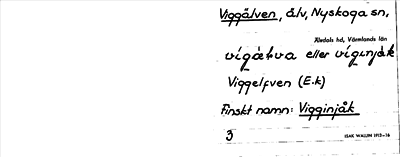 Viggälven, älv, Nyskoga sn,
Älvdals hd, Värmlands län
vígäƚva eller víginjåk
Viggelfven (E.k)
Finskt namn: Vigginjåk
3 ISAK WALLIN 1915-16